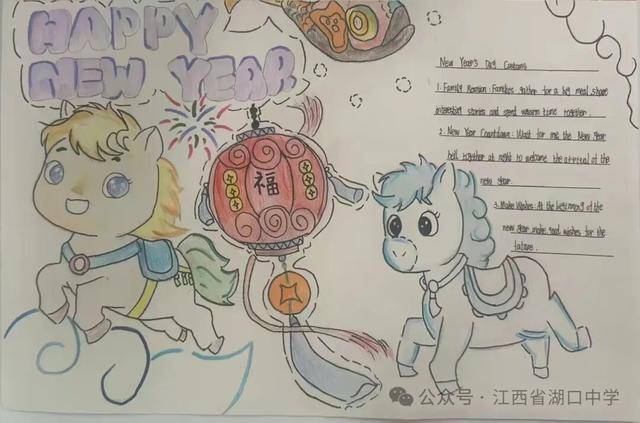 HAPPY
NEW YEAR
福
New Year's Day Customs
1. Family Reunion: Families gather for a big meal, share
interesting stories and spend warm time together.
2. New Year Countdown: Wait for the New Year
bell together at night to welcome the arrival of the
new year.
3. Make Wishes: At the beginning of the
new year make good wishes for the
future.
公众号·江西省湖口中学